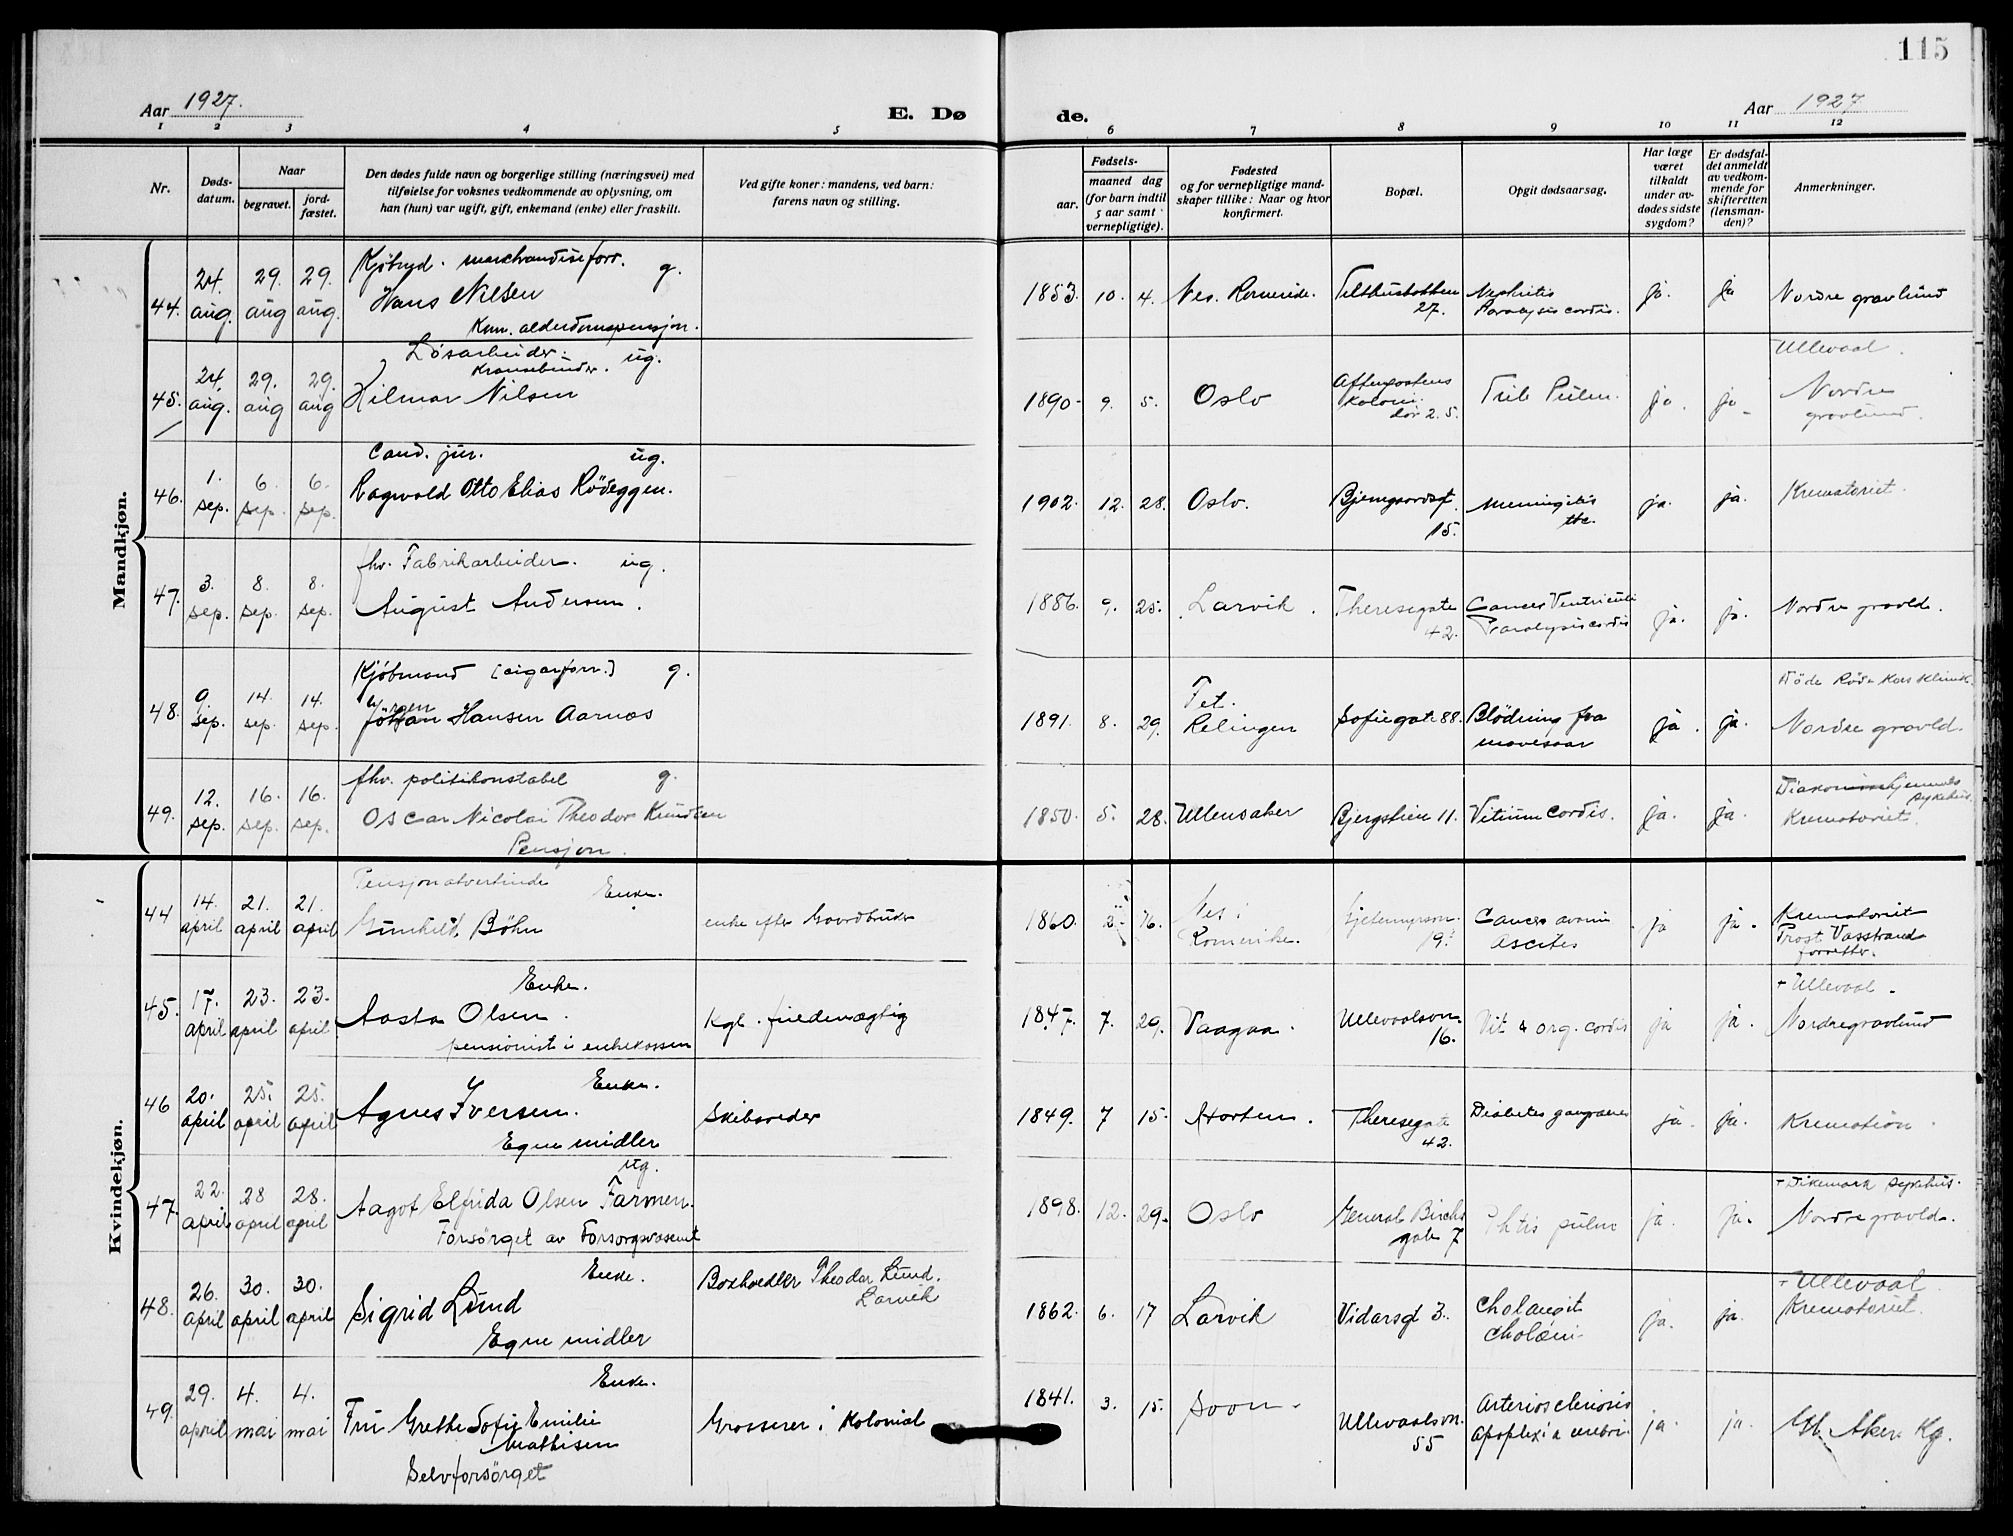 115
Aar 1927.
E. Dø
de.
Aar 1927
1 2 3 4 5 6 7 8 9 10 11 12
Nr.
Døds-
datum.
Naar
begravet.
jord-
fæstet.
Den dødes fulde navn og borgerlige stilling (næringsvei) med
tilføielse for voksnes vedkommende av oplysning, om
han (hun) var ugift, gift, enkemand (enke) eller fraskilt.
Ved gifte koner: mandens, ved barn:
farens navn og stilling.
Fødsels-
aar.
maaned dag
(for barn indtil
5 aar samt
vernepligtige).
Fødested
og for vernepligtige mand-
skaper tillike: Naar og hvor
konfirmert.
Bopæl.
Opgit dødsaarsag.
Har læge
været
tilkaldt
under av-
dødes sidste
sygdom?
Er dødsfal-
det anmeldt
av vedkom-
mende for
skifteretten
(lensman-
den)?
Anmerkninger.
Mandkjøn.
44. 24. aug. 29. aug 29. aug.
g.
Hans Nilsen
Kom. alderdomspensjon.
1853. 10. 4. Nes. Romerike. 27. Nephritis
Paralysis cordis. ja. ja Nordre gravlund
45. 24. aug. 29. aug 29. aug
Løsarbeider. ug.
Kransebinder.
Hilmar Nilsen
1890. 9. 5. Oslo Aftenpostens
koloni
ja. ja.
Ullevaal.
Nordre
gravlund.
46. 1. sep. 6. sep. 6. sep.
Cand. jur. ug.
Ragnvald Otto Elias Rödeggen.
1902. 12. 28. Oslo. 15. Meningitis
tbc. ja. ja. Krematoriet.
47. 3. sep. 8. sep. 8. sep.
fhv. Fabrikarbeider. ug.
August Andersen.
1886. 9. 25. Larvik. Theresegate
42. Cancer Ventriculi
Paralysis cordis ja. ja. Nordre gravld.
48. 9. sep. 14. sep. 14. sep.
Kjöbmand [cigarforr.] g.
Jörgen
Hansen Aarnæs
1891. 8. 29. Fet.
Relingen Sofiegate 88. Blödning fra
mavesaar ja. ja.
Döde Røde Kors Klinik.
Nordre gravld.
49. 12. sep. 16. sep. 16. sep.
fhv. politikonstabel g.
Oscar Nicolai Theodor Knudsen
Pensjon.
1850. 5. 28. Ullensaker Bjergstien 11. Vitium Cordis. ja. ja.
Krematoriet.
Kvindekjøn.
44 14. april 21. april 21. april
Pensjonatvertinde
Enke.
Gunhild Böhn
enke efter Gaardbruker
1860. 2. 16. Nes i
Romerike. 19. Cancer
Ascites ja ja.
Krematoriet
Prost Vasstrand
forretter.
45. 17. april 23. april 23. april
Enke.
Aasta Olsen.
pensionist i enkekassen
Kgl. fuldmægtig
1847. 7. 29. Vaagaa. Ullevaalsvn.
16. Vit. org. cordis ja ja.
+ Ullevaal.
Nordre gravlund
46 20. april 25. april 25. april
Enke.
Agnes Iversen.
Egne midler
Skibsreder
1849. 7 15. Horten. Theresegate
42. Diabetes gangraenes ja. ja. Kremation.
47. 22. april 28 april 28. april
ug.
Aagot Elfrida Olsen Farmen.
Forsörget av Forsorgsvæsenet
1898. 12. 29. Oslo General Birchs
gate 7 Phtis pulm ja. ja.
+ Dikemark sykehus.
Nordre gravld.
48. 26. april 30. april 30. april
Enke.
Sigrid Lund
Egne midler
Boxhandler Theodor Lund.
Larvik
1862. 6. 17 Larvik Vidarsgt 3. Cholangit
Cholæmi ja. ja.
+ Ullevaal
Krematoriet.
49. 29. april 4. mai 4. mai
Enke.
Fru Grethe Sofie Emilie
Mathisen
Selvforsörget
Grosserer i Kolonial
1841. 3. 15. Soon. Ullevaalsvn.
55 Arteriosclerosis
apoplexia cerebri. ja. ja. V. Aker Kg.